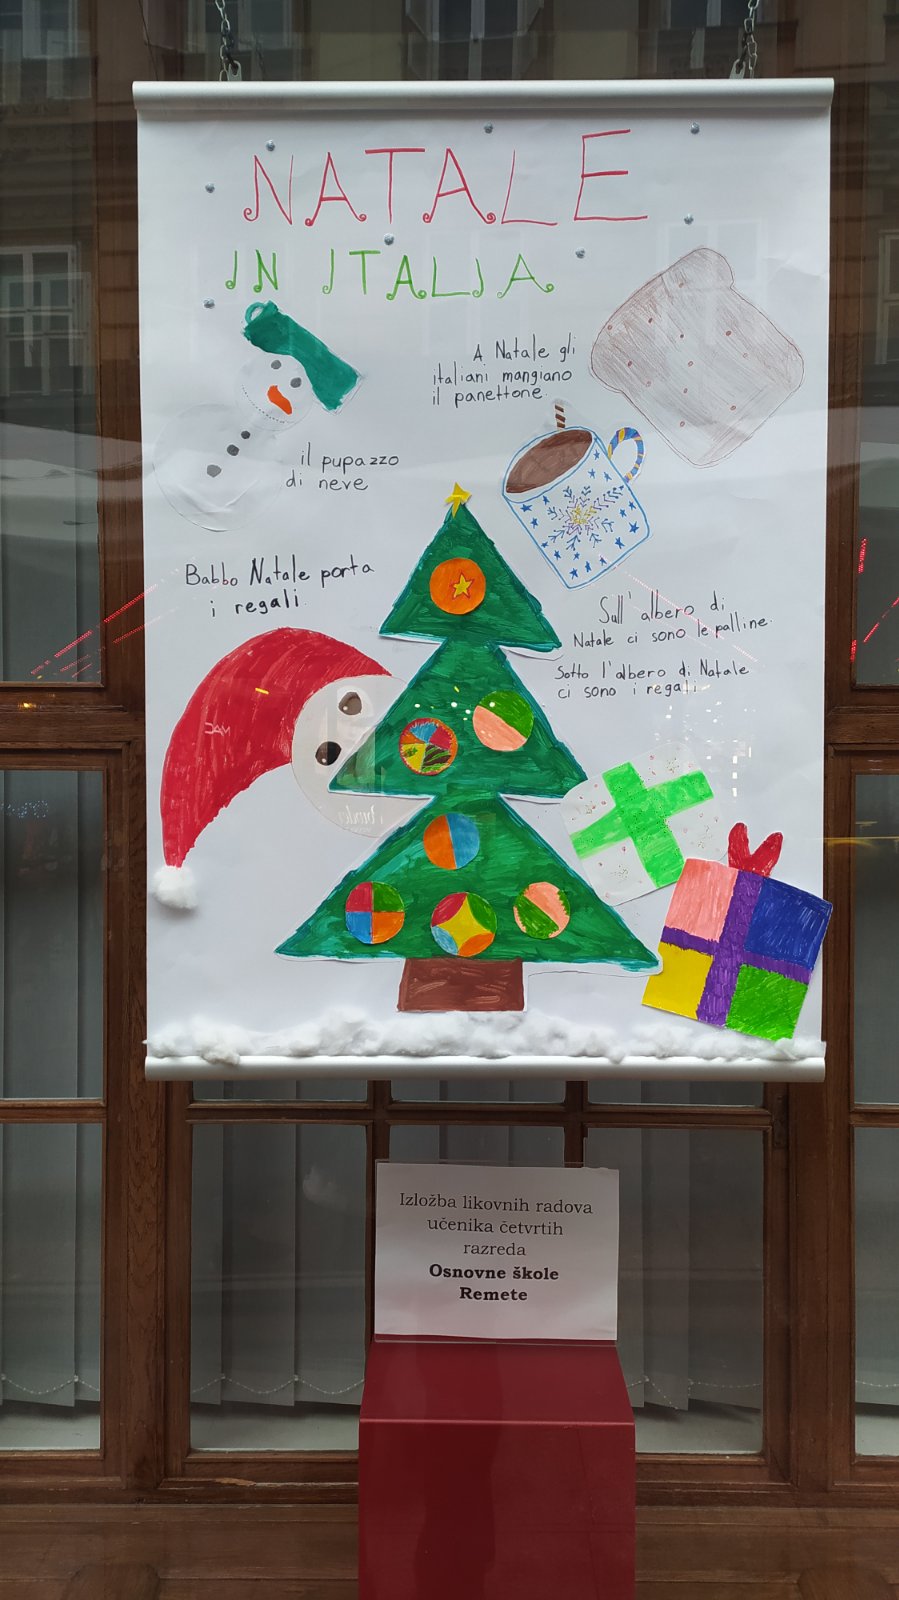 NATALE
IN ITALIA
A Natale gli
italiani mangiano
il panettone.
il pupazzo
di neve
Babbo Natale porta
i regali.
Sull'albero di
Natale ci sono le palline.
Sotto l'albero di Natale
ci sono i regali.
Izložba likovnih radova
učenika četvrtih
razreda
Osnovne škole
Remete